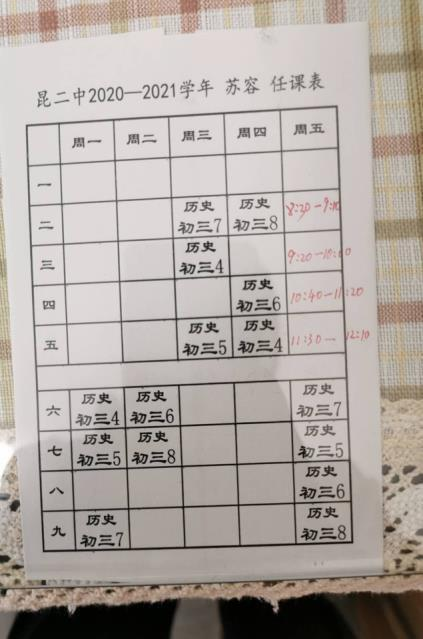 昆二中2020—2021学年 苏容 任课表
周一 周二 周三 周四 周五
一
二 历史 初三7 历史 初三8 8:30-9:10
三 历史 初三4 9:20-10:00
四 历史 初三6 10:40-11:20
五 历史 初三5 历史 初三4 11:30-12:10
六 历史 初三4 历史 初三6 历史 初三7
七 历史 初三5 历史 初三8 历史 初三5
八 历史 初三6
九 历史 初三7 历史 初三8